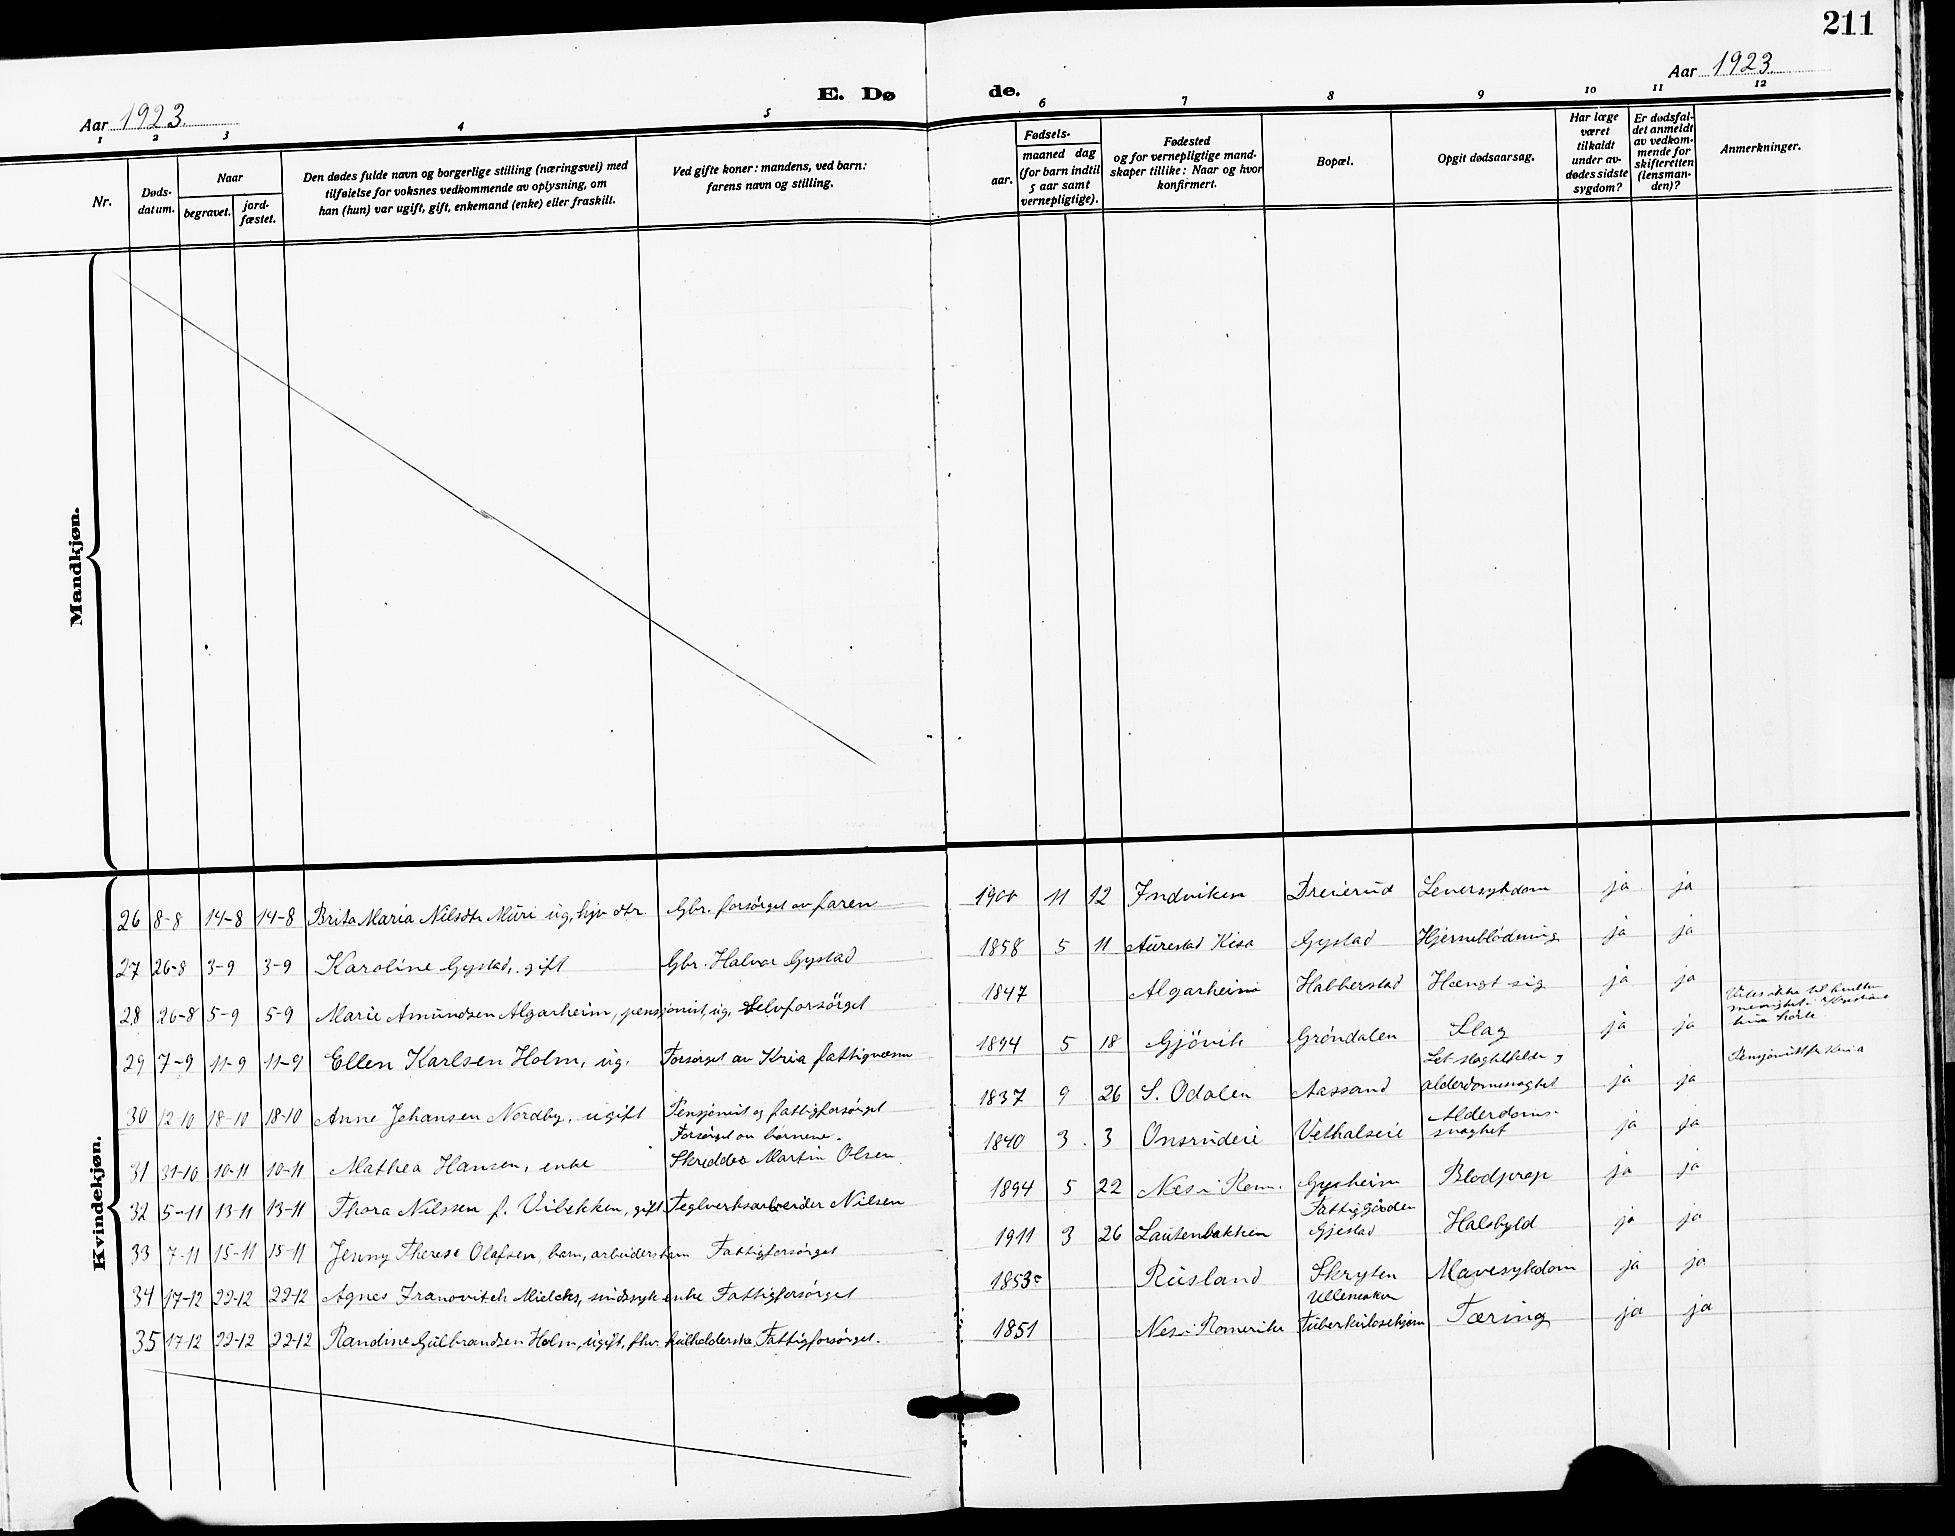 211
Aar 1923.
E. Dø
de.
Aar 1923.
1 2 3 4 5 6 7 8 9 10 11 12
Nr.
Døds-
datum.
Naar
begravet.
jord-
fæstet.
Den dødes fulde navn og borgerlige stilling (næringsvei) med
tilføielse for voksnes vedkommende av oplysning, om
han (hun) var ugift, gift, enkemand (enke) eller fraskilt.
Ved gifte koner: mandens, ved barn:
farens navn og stilling.
Fødsels-
aar.
maaned dag
(for barn indtil
5 aar samt
vernepligtige).
Fødested
og for vernepligtige mand-
skaper tillike: Naar og hvor
konfirmert.
Bopæl.
Opgit dødsaarsag.
Har læge
været
tilkaldt
under av-
dødes sidste
sygdom?
Er dødsfal-
det anmeldt
av vedkom-
mende for
skifteretten
(lensman-
den)?
Anmerkninger.
Mandkjøn.
Kvindekjøn.
26 8-8 14-8 14-8 Brita Maria Nilsdtr Muri ug, hjv dtr. Gbr. forsørget av faren 1900 11 12 Indviken Dreierud Leversykdom ja ja
27 26-8 3-9 3-9 Karoline Gystad, gift Gbr. Halvor Gystad 1858 5 11 Aurestad Kisa Gystad Hjerneblödning ja ja
28 26-8 5-9 5-9 Marie Amundsen Algarheim, pensjonist, ug. Selvforsörget 1847 Algarheim Habberstad Hængt sig ja ja
29 7-9 11-9 11-9 Ellen Karlsen Holm, ug. Forsörget av Kria fattigvæsen 1894 5 18 Gjövik Gröndalen Slag ja ja
30 12-10 18-10 18-10 Anne Johansen Nordby, ugift Pensjonist og fattigforsörget 1837 9 26 S. Odalen Aassand Let slagtilfelde og
alderdomssvaghet ja ja
31 31-10 10-11 10-11 Mathea Hansen, enke Forsörget av børnene. 1840 3 3 Onsrudeie Velhalseie Alderdoms-
svaghet ja ja
32 5-11 13-11 13-11 Thora Nilssen f. Vibekken, gift Skredder Martin Olsen
Teglverksarbeider Nilsen 1894 5 22 Nes i Rom. Gysheim Blodprop ja ja
33 7-11 15-11 15-11 Jenny Therese Olafsen, barn, arbeidersbarn Fattigforsörget 1911 3 26 Lautenbakken Fattiggården
Gjestad Halsbyld ja ja
34 17-12 22-12 22-12 Agnes Franovitch Mielcks, sindssyk enke Fattigforsörget 1853 Rusland Skryten Mavesykdom ja ja
35 17-12 22-12 22-12 Randine Gulbrandsen Holm, ugift, fhv. husholderske Fattigforsörget. 1851 Nes i Romerike Ullensaker
Tuberkulosehjem Tæring ja ja